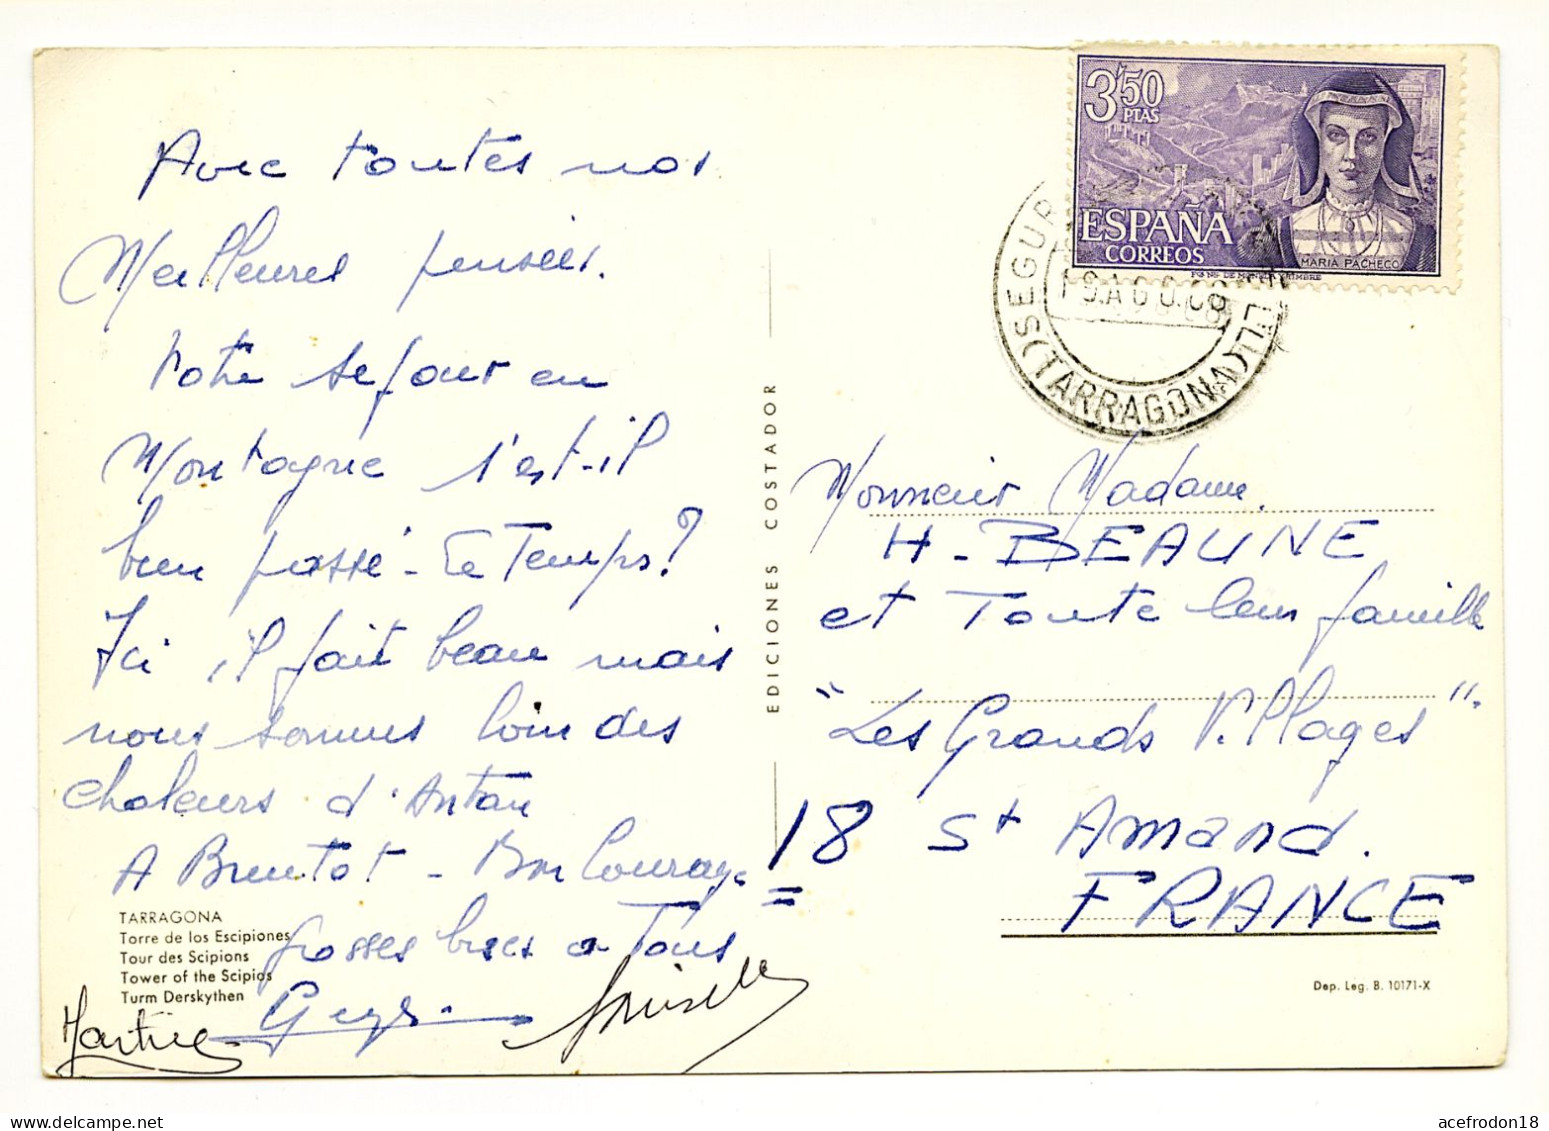 Avec toutes nos
Meilleures pensées.
Votre sejour en
Montagne s'est-il
bien passé - Le Temps?
Ici, il fait beau mais
nous sommes loin des
chaleurs d'Antan
A Bientot - Bon Courage
Grosses bises a Tous
Martine
TARRAGONA
Torre de los Escipiones
Tour des Scipions
Tower of the Scipios
Turm Derskythen
EDICIONES COSTADOR
3'50
PTAS
ESPAÑA
CORREOS
MARIA PACHECO
(TARRAGONA)
Monsieur Madame
H. BEAUNE
et Toute leur famille
"Les Grands Villages".
18 St Amand.
FRANCE
Dep. Leg. B. 10171-X
acefrodon18